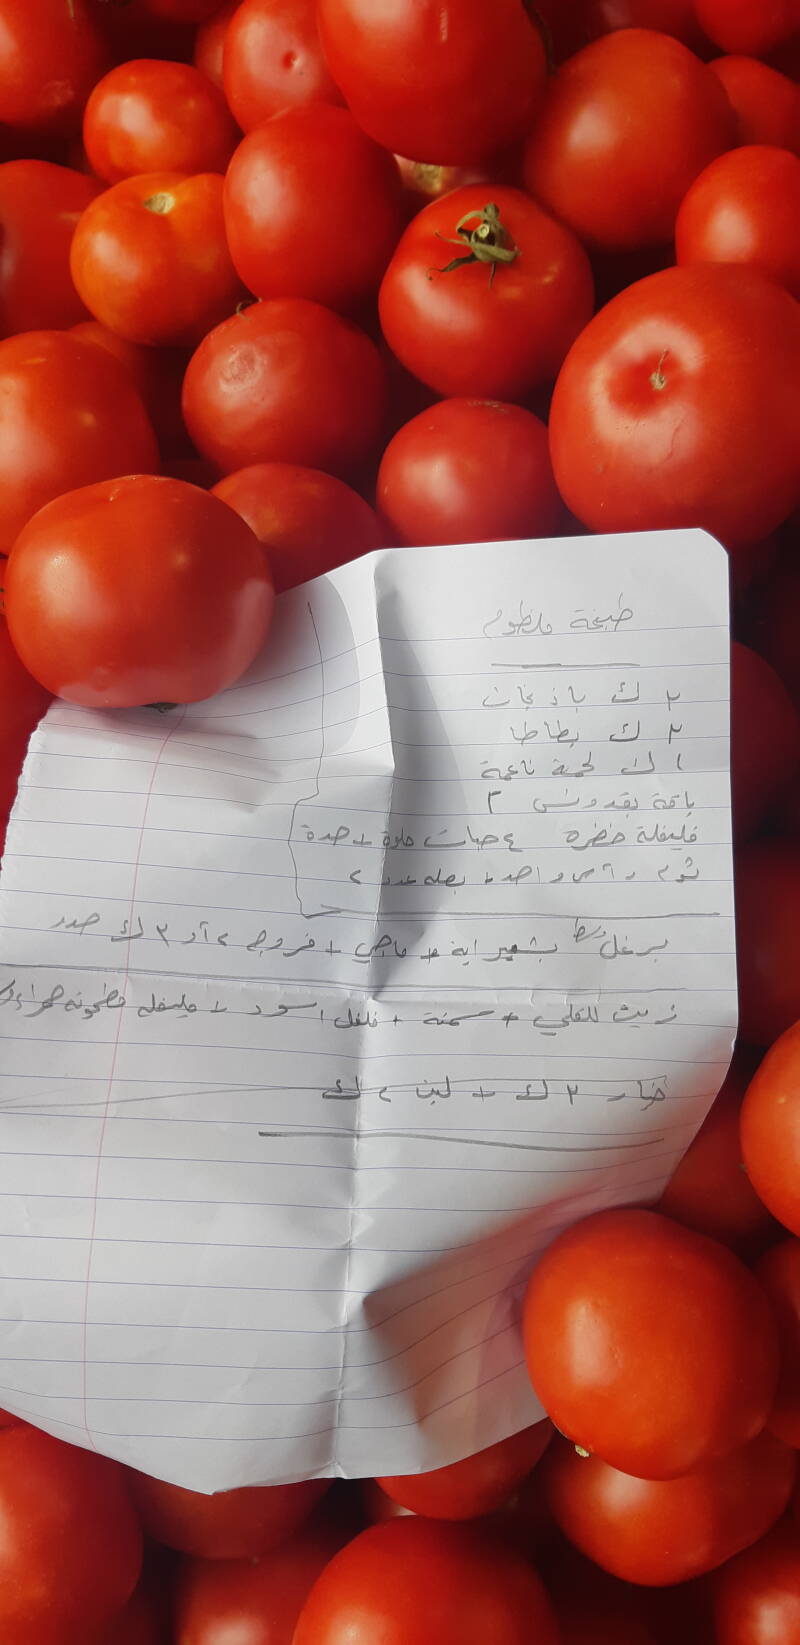 طبخة منظوم
٢ ك باذنجان
٢ ك بطاطا
١ ك لحمة ناعمة
باقة بقدونس ٣
فليفلة خضره ٤ حبات حلوة + حدة
ثوم رأس واحد + بصله عدد ٢
برغل وسط بشعيراية + ماجي + فروج ٢ أو ٣ ك صدر
زيت للقلي + سمنة + فلفل اسود + فليفله مطحونه حمراء
خيار ٢ ك + لبن ٢ ك